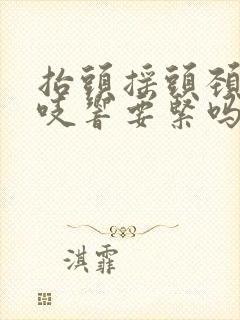 抬頭搖頭頚
吱響要緊嗎
淇霏